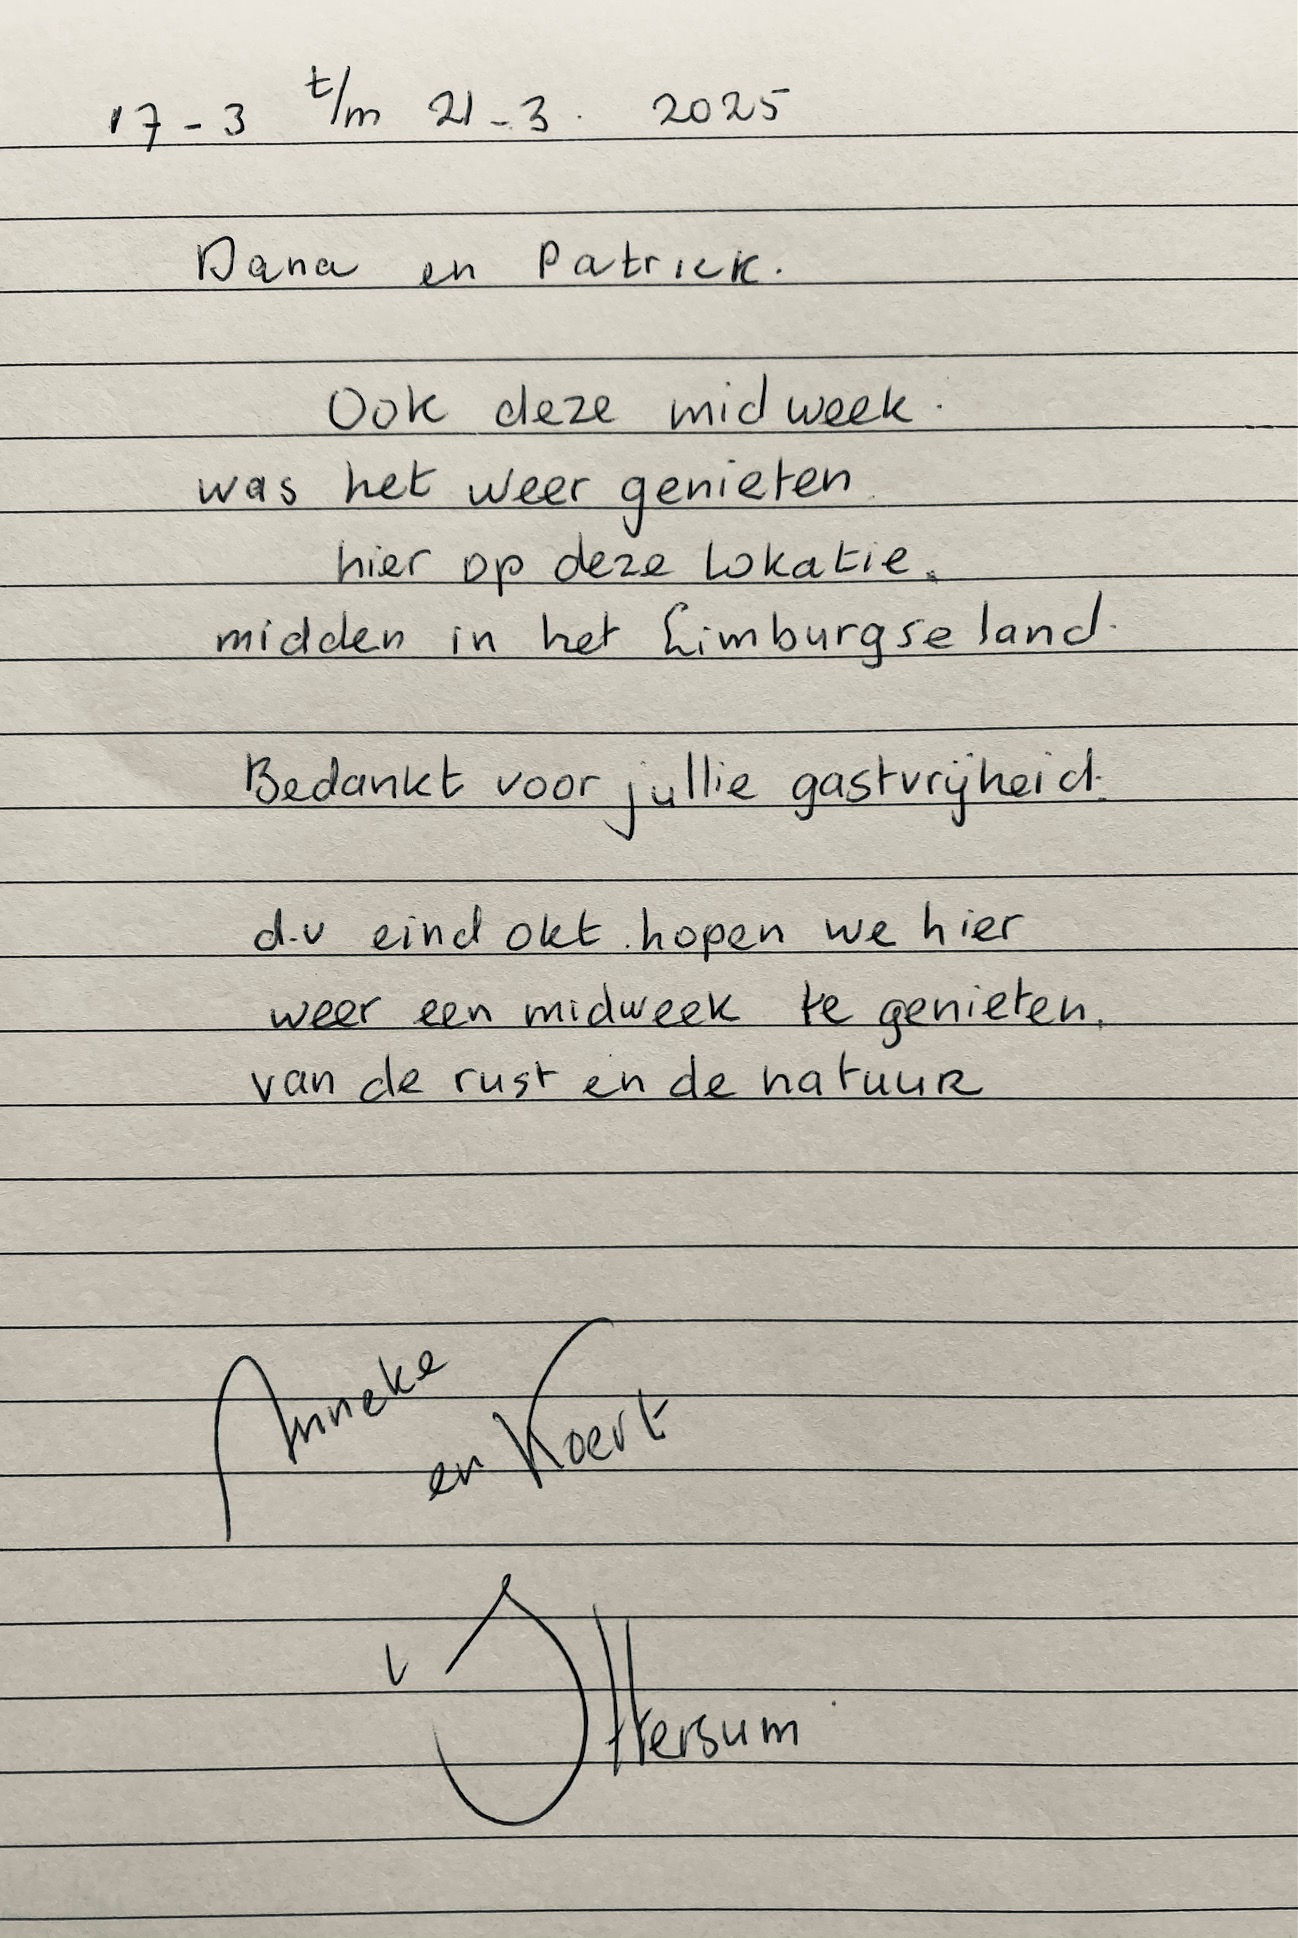 17-3 t/m 21-3. 2025
Dana en Patrick.
Ook deze midweek.
was het weer genieten.
hier op deze lokatie.
midden in het Limburgse land.
Bedankt voor jullie gastvrijheid.
d.v eind okt. hopen we hier
weer een midweek te genieten.
van de rust en de natuur
Anneke
en Koert
v Ittersum